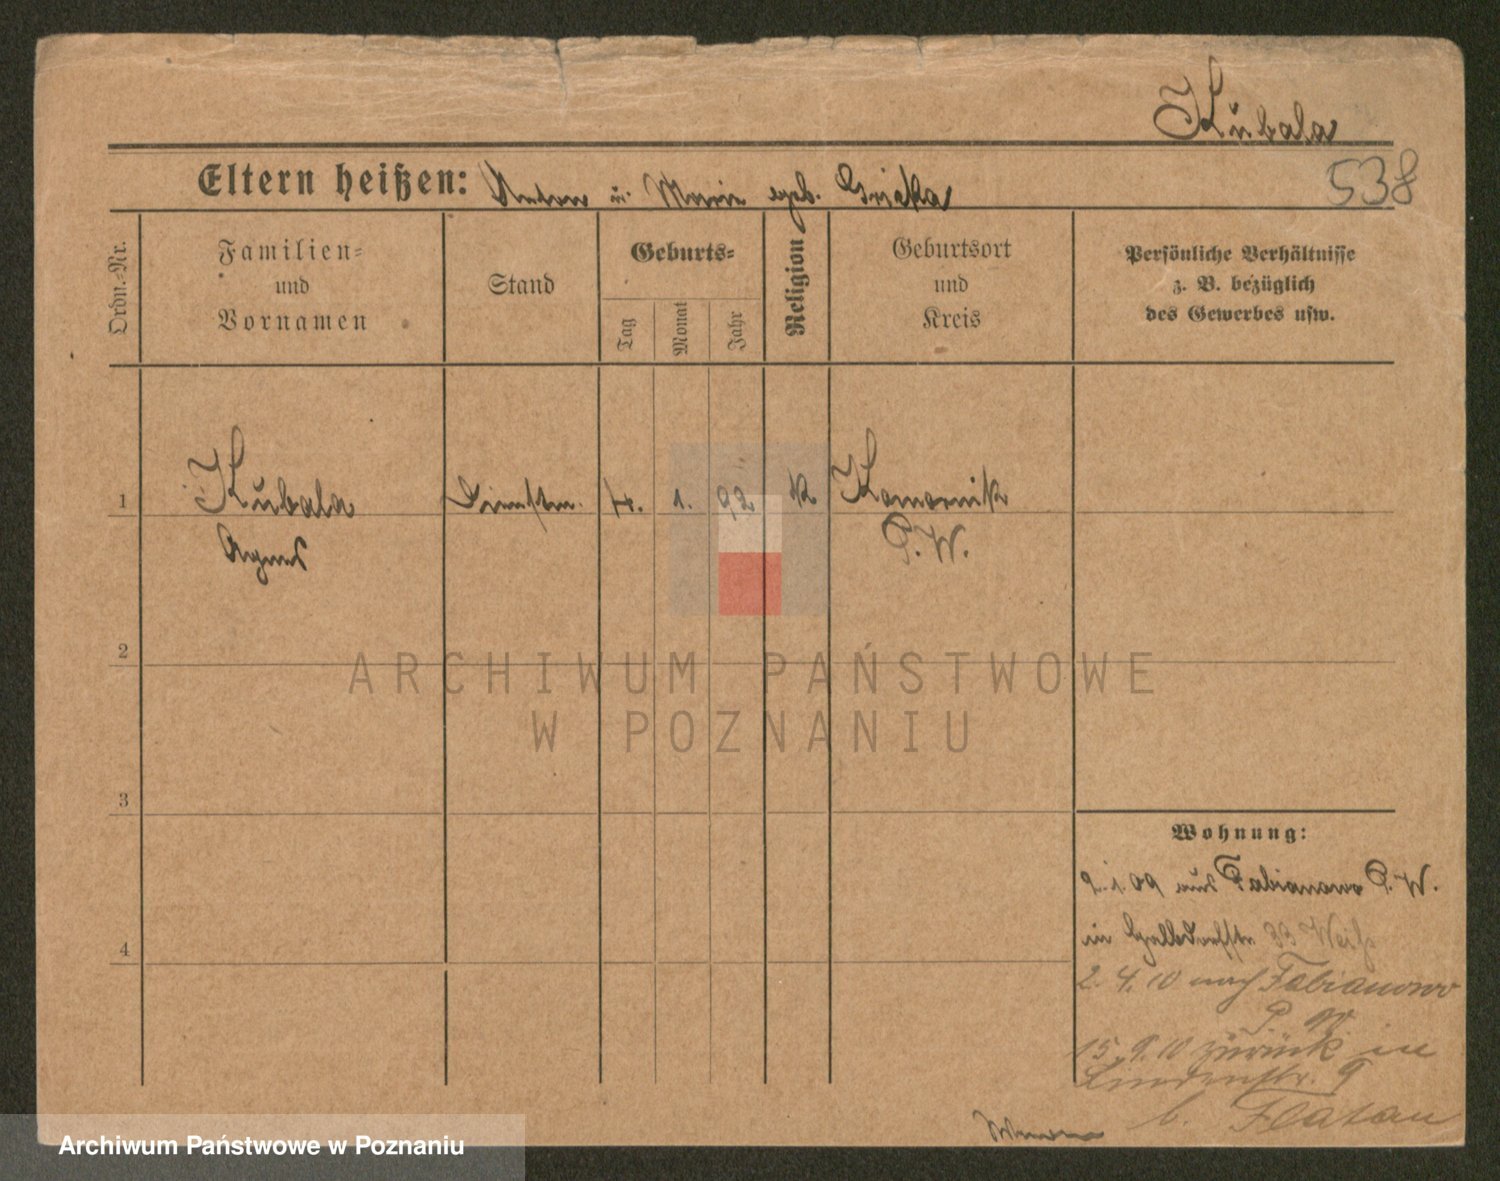 Kubala
538
Eltern heißen: Anton u. Marie geb.
Ordn.-Nr.
Familien-
und
Vornamen
Stand
Geburts-
Tag
Monat
Jahr
Religion
Geburtsort
und
Kreis
Persönliche Verhältnisse
z. B. bezüglich
des Gewerbes usw.
1 Kubala Dienstm. 4. 1. 92 k Komornik
Agnes P. W.
2
3
4
ARCHIWUM PAŃSTWOWE
W POZNANIU
Wohnung:
2.1.09 aus Fabianowo P. W.
in 33 Weiß
2.4.10 nach Fabianowo
P. W.
15.9.10 zurück in
Lindenstr. 9
b. Flatau
Archiwum Państwowe w Poznaniu